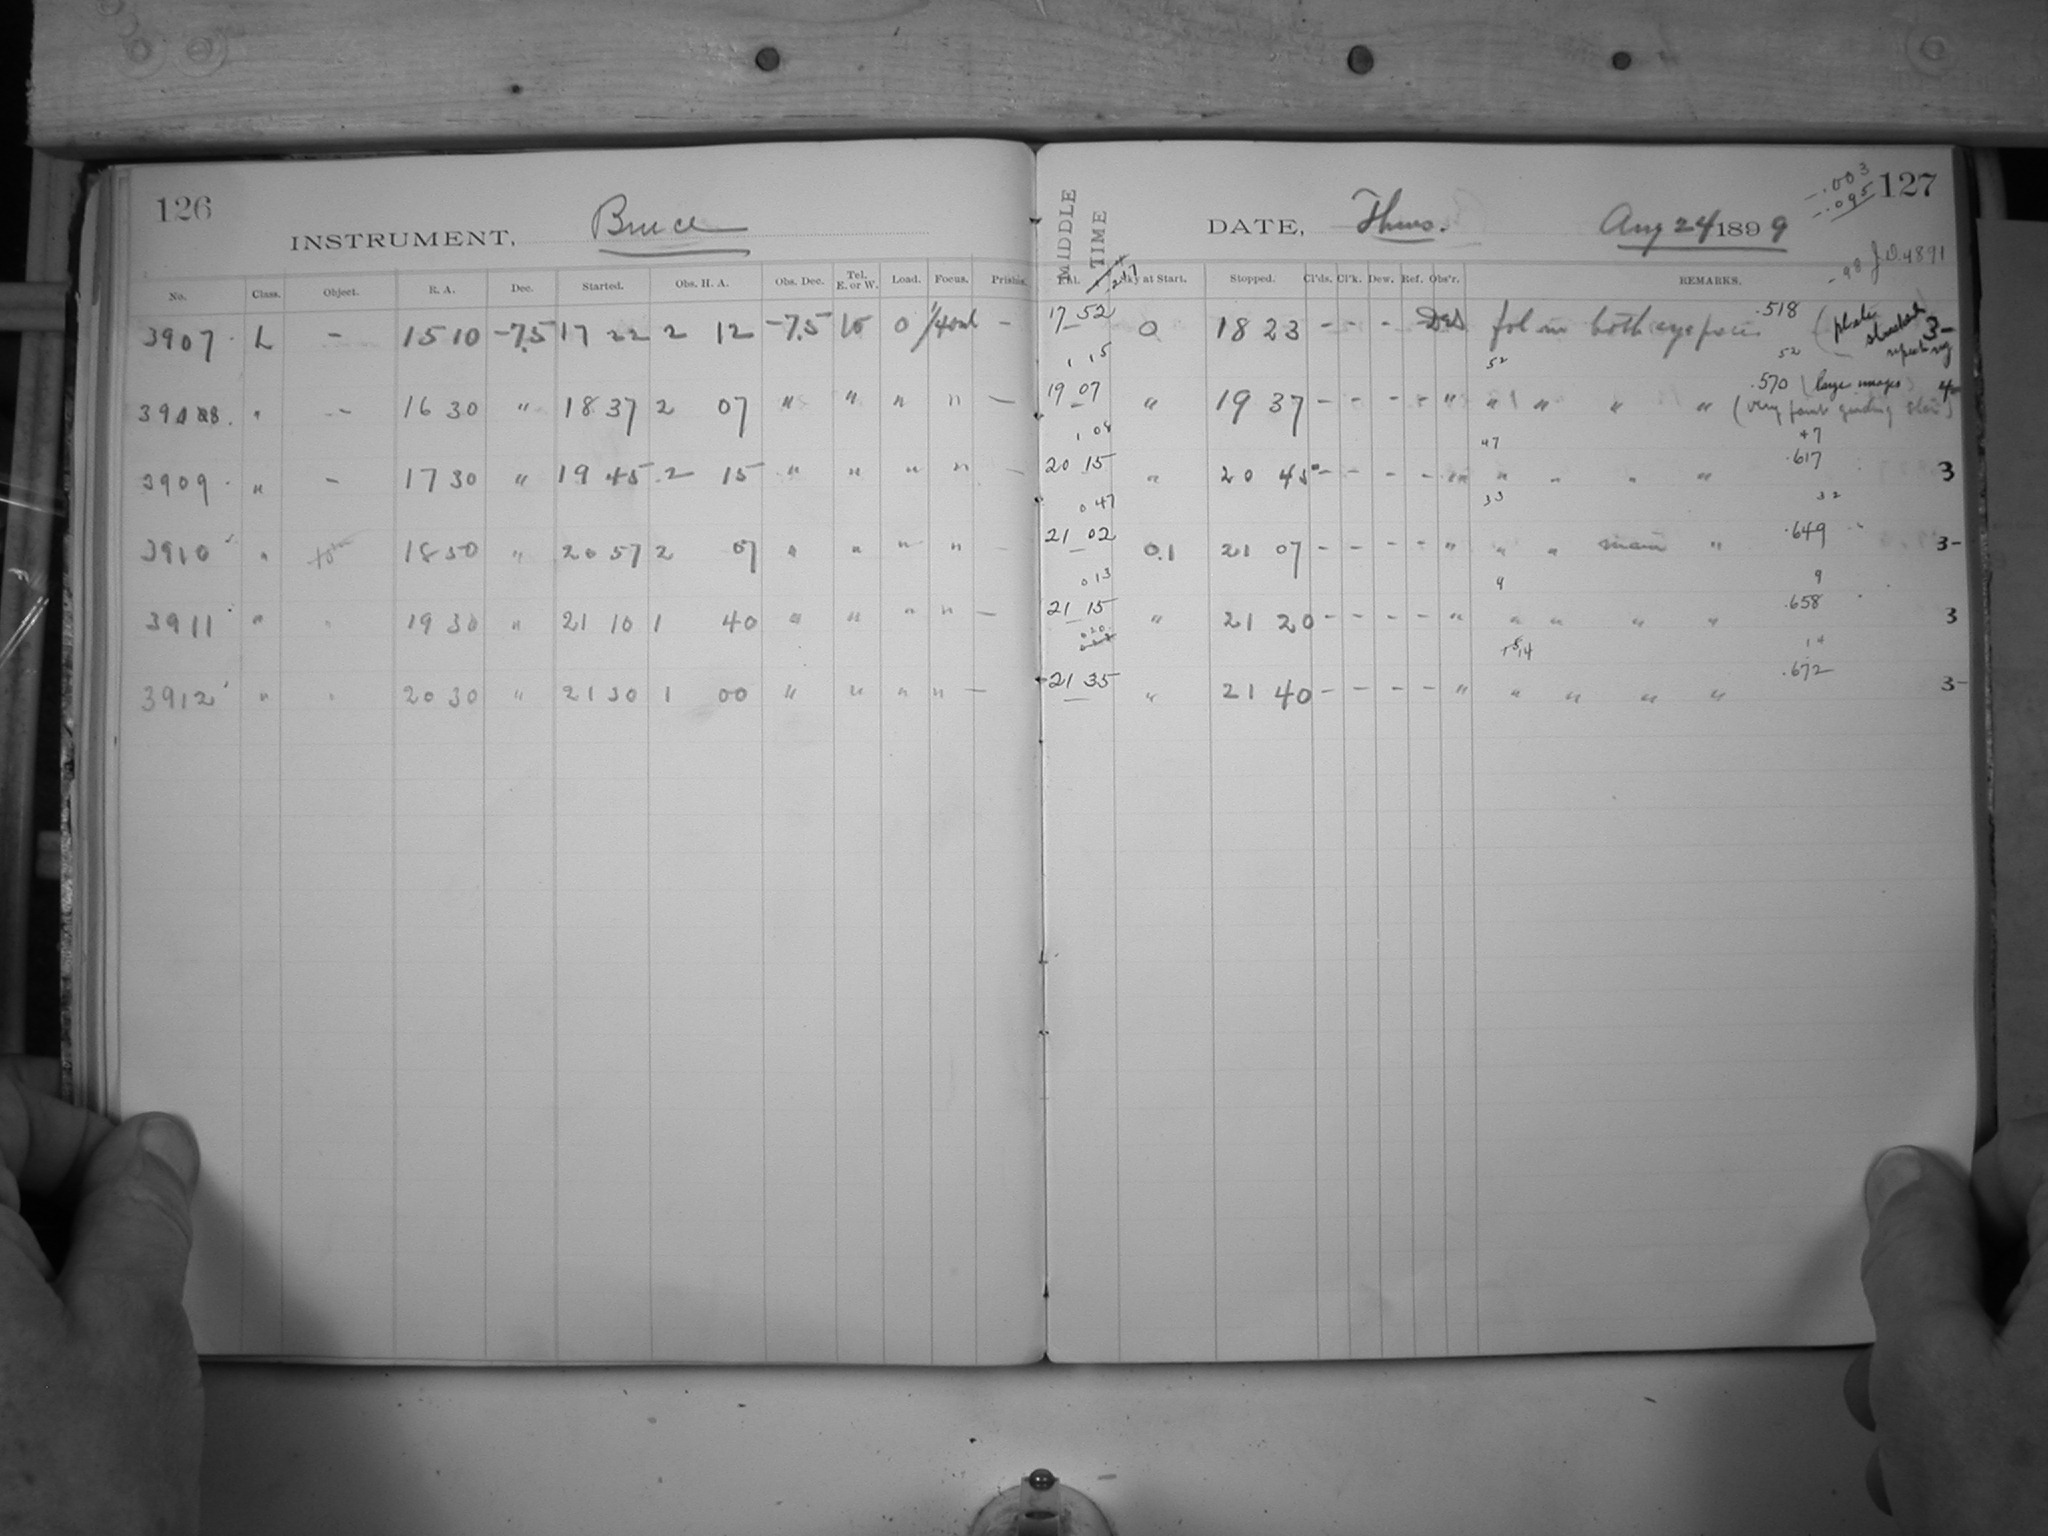 126
INSTRUMENT, Bruce
No. Class. Object. R. A. Dec. Started. Obs. H. A. Obs. Dec. Tel. E. or W. Load. Focus. Prisms.
3907 L - 15 10 -7.5 17 22 2 12 -7.5 0 -
" - 16 30 " 18 37 2 07 " " " " -
3909 " - 17 30 " 19 45 2 15 " " " " -
3910 " 18 50 " 20 57 2 07 " " " " -
3911 " 19 30 " 21 10 1 40 " " " " -
3912 " 20 30 " 21 30 1 00 " " " " -
-.003
-.095
127
MIDDLE TIME
DATE, Thurs. Aug 24 1899
-98 J.D. 4891
Sky at Start. Stopped. Cl'ds. Cl'k. Dew. Ref. Obs'r. REMARKS.
17 52 0 18 23 - - - fol in both eyepieces .518 (plate 3-
1 15 52 52
19 07 " 19 37 - - - - " " " " " .570 (large images) 4-
(very faint guiding star)
1 08 47 47
20 15 " 20 45 - - - - " " " " .617 3
0 47 33 32
21 02 0.1 21 07 - - - - " " " main " .649 3-
0 13 9 9
21 15 " 21 20 - - - - " " " " " .658 3
0 20 14 14
21 35 " 21 40 - - - - " " " " " .672 3-